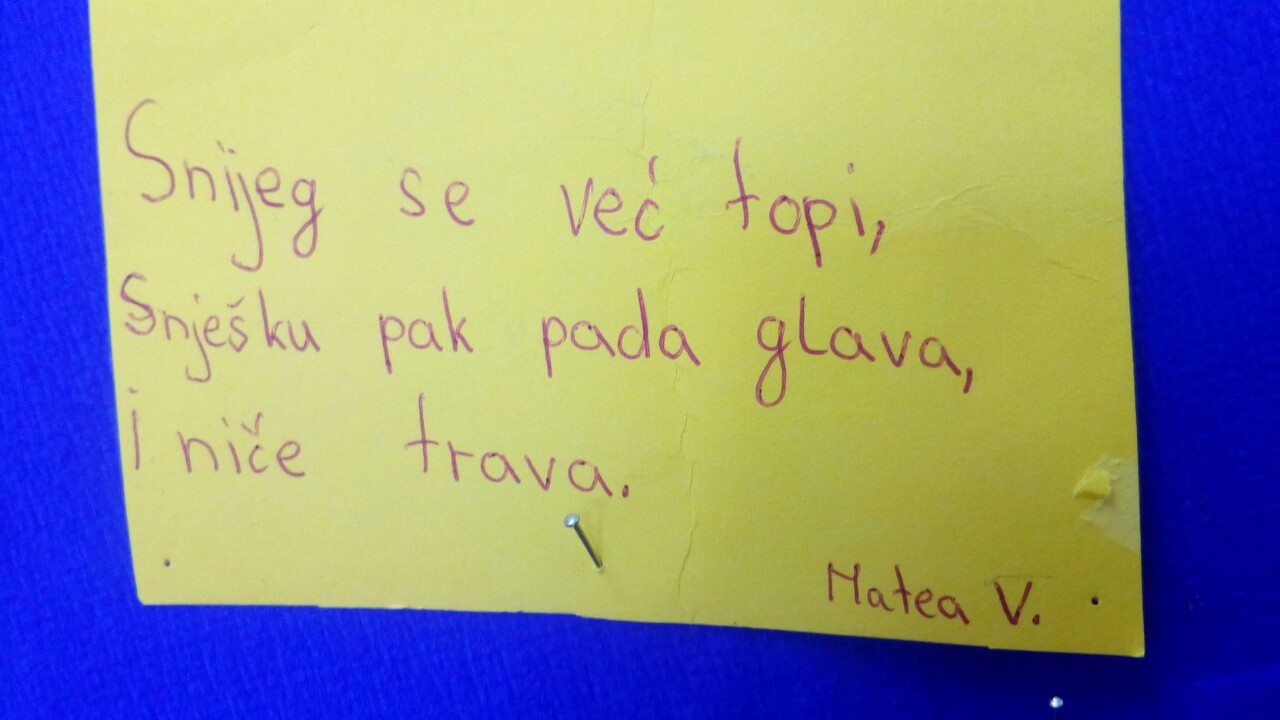 Snijeg se već topi,
Snješku pak pada glava,
i niče trava.
Matea V.